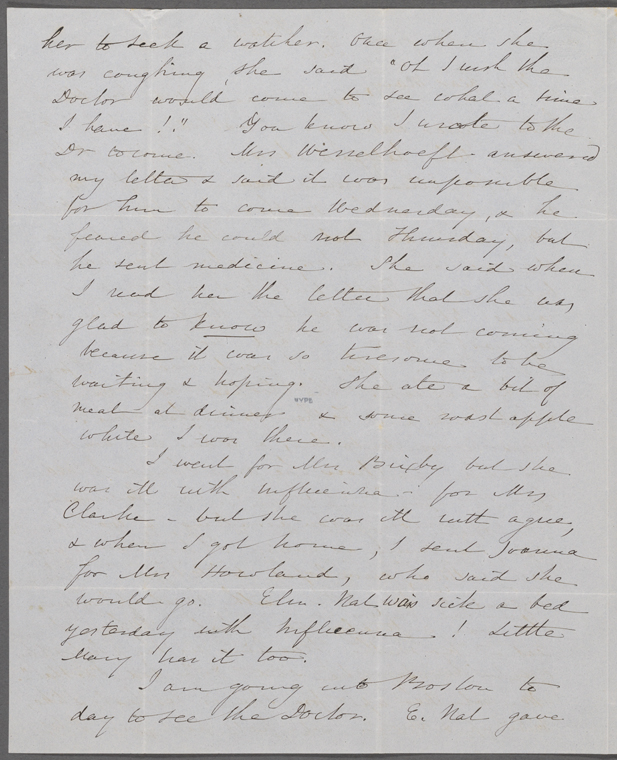 her to seek a watcher. Once when she
was coughing she said "Oh I wish the
Doctor would come to see what a time
I have!!" You know I wrote to the
Dr to come. Mrs Wesselhoeft answered
my letter & said it was impossible
for him to come Wednesday, & he
feared he could not Thursday, but
he sent medicine. She said when
I read her the letter that she was
glad to know he was not coming
because it was so tiresome to be
waiting & hoping. She ate a bit of
NYPL
meat at dinner & some roast apple
while I was there.
I went for Mrs Bixby but she
was ill with influenza - for Mrs
Clarke - but she was ill with ague,
& when I got home, I sent Joanna
for Mrs Howland, who said she
would go. Nat was sick a bed
yesterday with influenza! Little
Mary has it too.
I am going into Boston to
day to see the Doctor. E. Nat gave